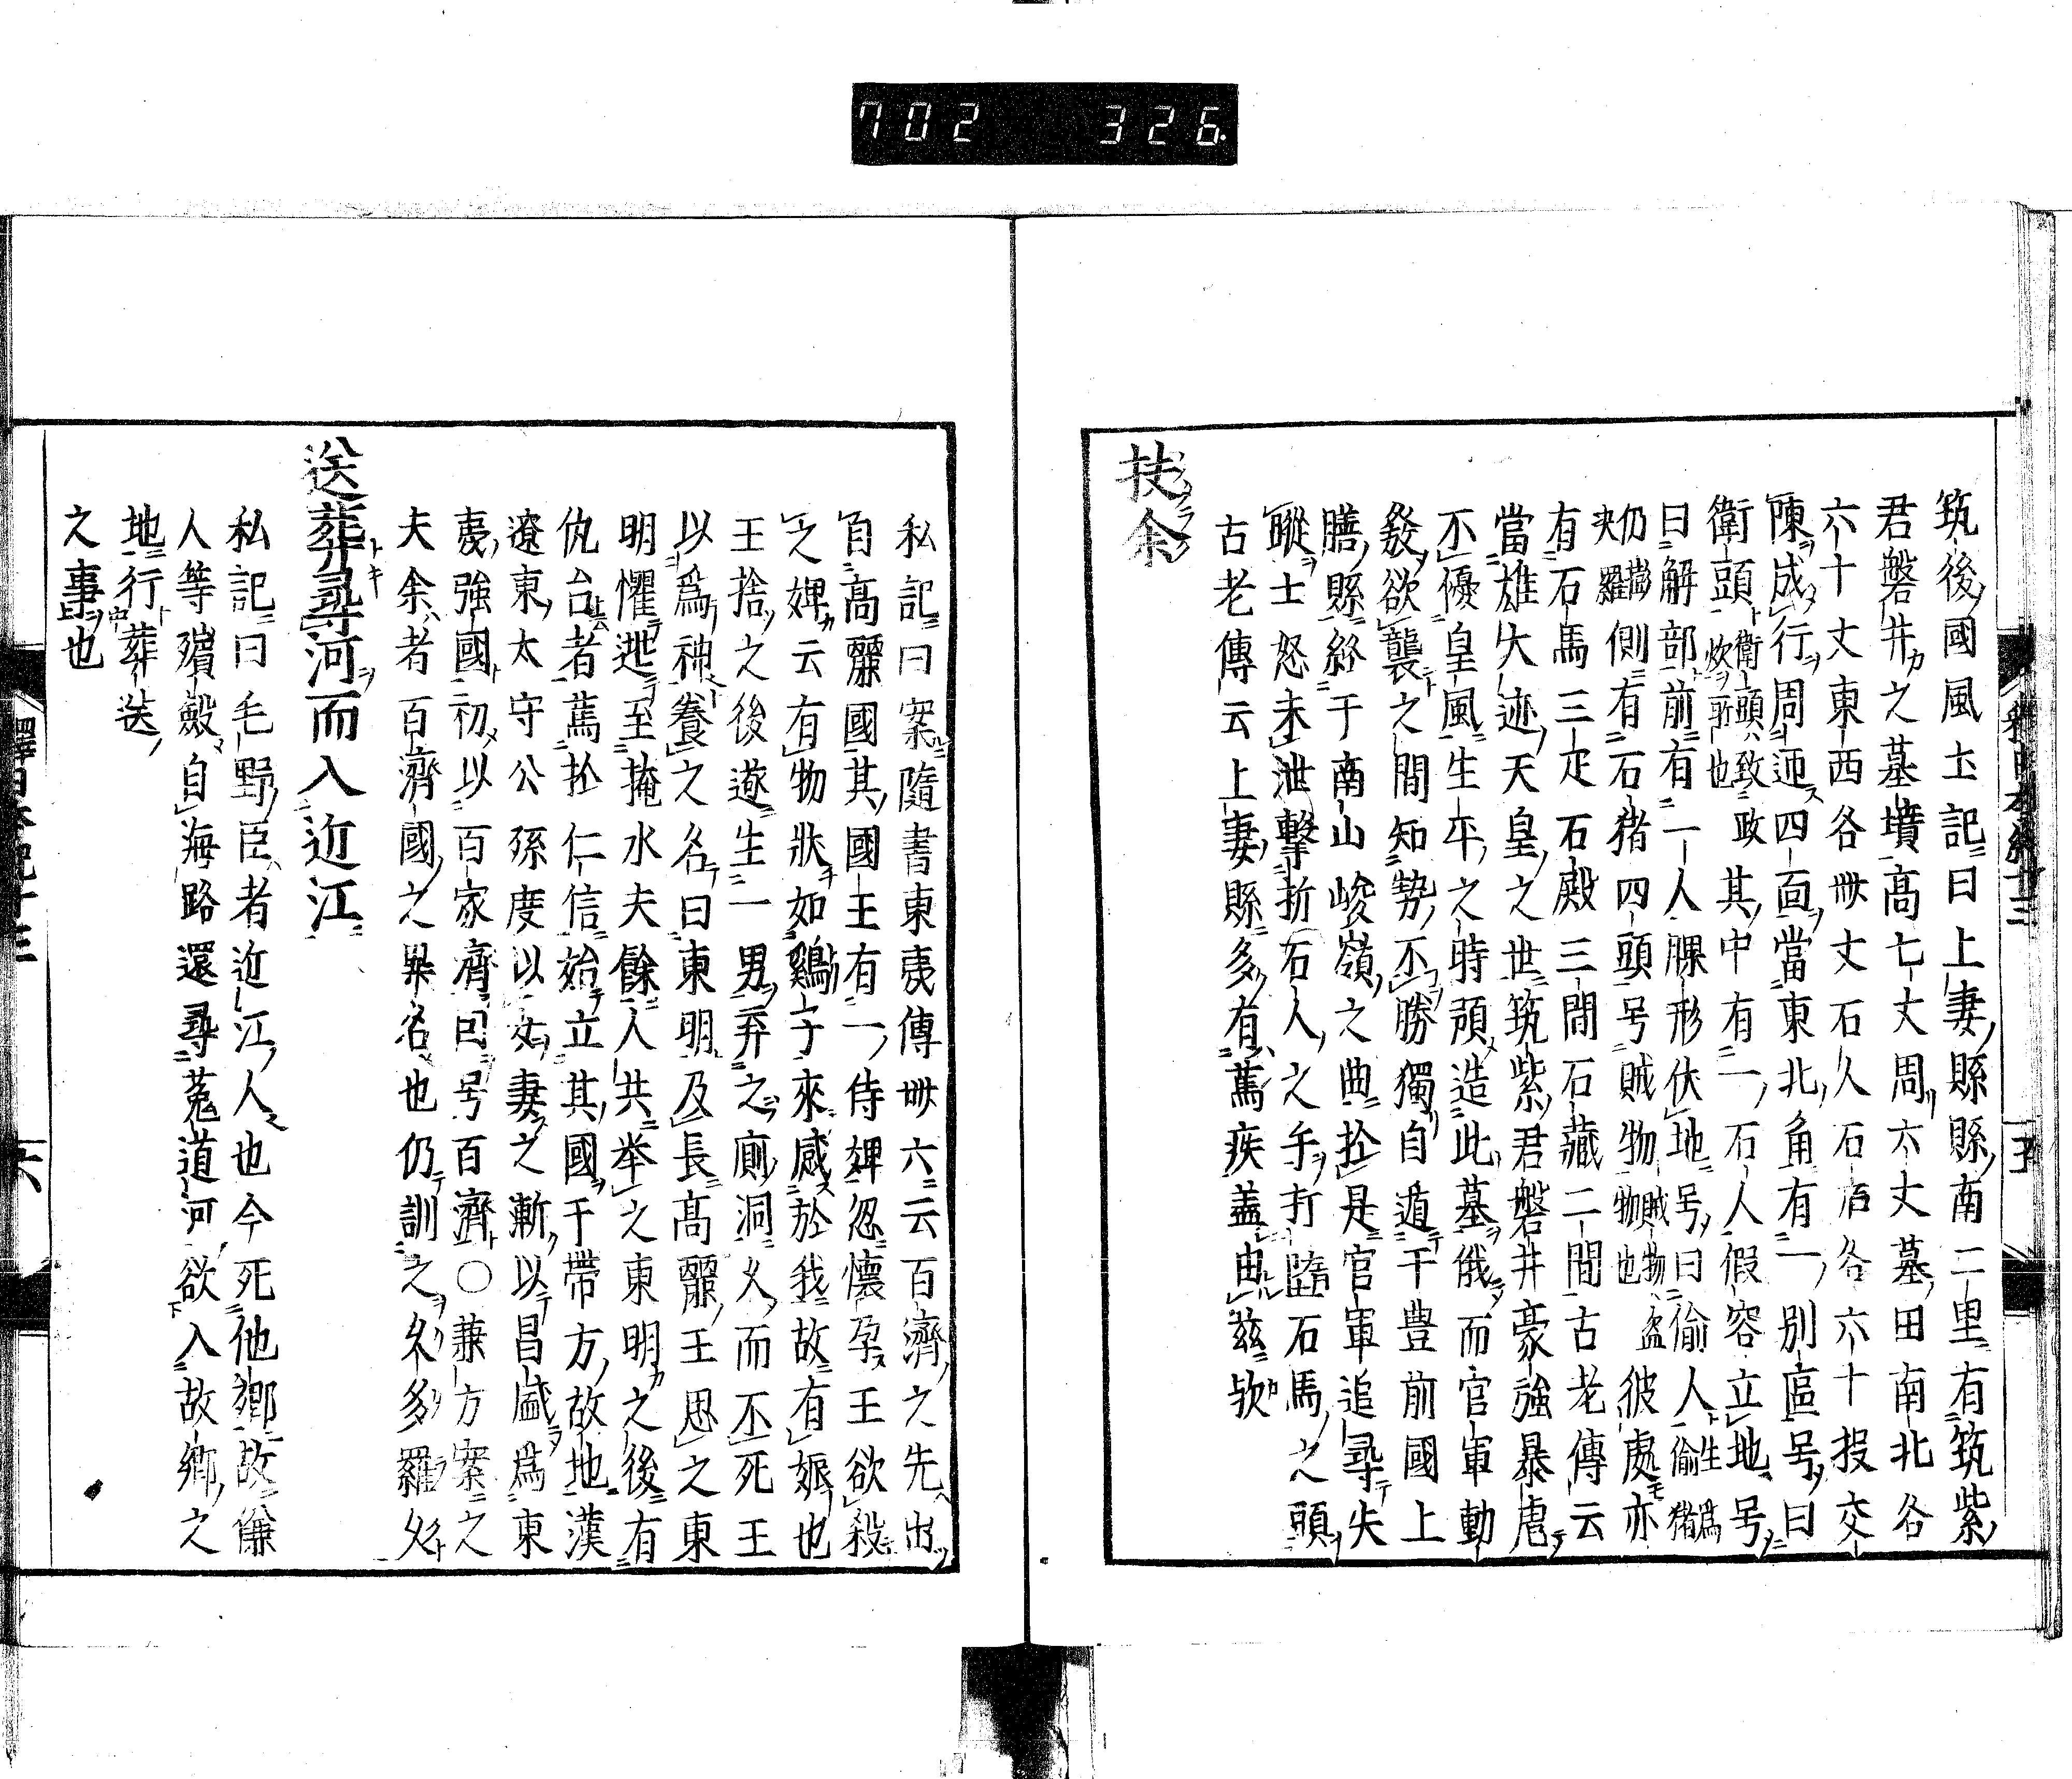 702 326
筑後國風土記曰上妻縣縣南二里有筑紫
君磐井之墓墳高七丈周六丈墓田南北各
六十丈東西各卌丈石人石盾各六十投交
陳成行周迊四面當東北角有一別區号曰
衛頭衛頭致政其中有一石人假容立地号
炊所也
曰解部前有一人躶形伏地号曰偷人生為偷猪
仍擬決羅側有石猪四頭号賊物賊物盗物也彼處亦
有石馬三疋石殿三間石藏二間古老傳云
當雄大迹天皇之世筑紫君磐井豪強暴虐
不偃皇風生平之時預造此墓俄而官軍動
發欲襲之間知勢不勝獨自遁于豊前國上
膳縣終于南山峻嶺之曲於是官軍追尋失
蹤士怒未泄擊折石人之手打墮石馬之頭
古老傳云上妻縣多有篤疾盖由兹欤
扶余
私記曰案隨書東夷傳卌六云百濟之先出
自高麗國其國王有一侍婢忽懷孕王欲殺
之婢云有物狀如鷄子來感於我故有娠也
王捨之後遂生一男弃之厠溷久而不死王
以爲神養之名曰東明及長高麗王思之東
明懼逃至掩水夫餘人共举之東明之後有
仇台者篤於仁信始立其國于帶方故地漢
遼東太守公孫度以女妻之漸以昌盛爲東
夷強國初以百家濟回号百濟〇兼方案之
夫余者百濟國之異名也仍訓之久多羅久
送葬尋河而入近江
私記曰毛野臣者近江人也今死他鄉故傔
人等殯斂自海路還尋菟道河欲入故鄉之
地行葬送
之事也